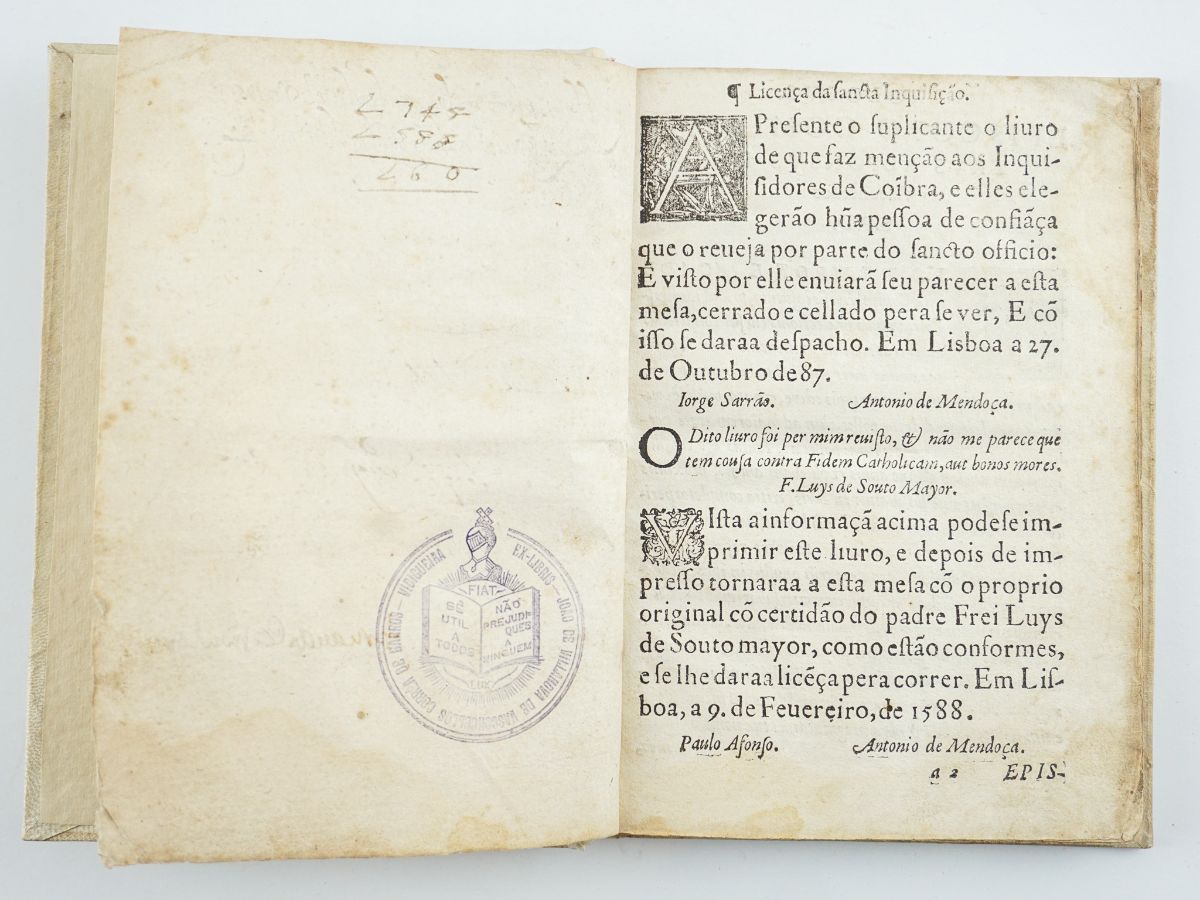 1745
1588
160
EX-LIBROS - JOÃO DE VILLANOVA DE VASCONCELLOS CORRÊA DE BARROS - VIDIGUEIRA
FIAT
SÊ UTIL A TODOS
NÃO PREJUDIQUES A NINGUEM
LUX
¶ Licença da sancta Inquisição.
APresente o suplicante o liuro
de que faz menção aos Inqui-
sidores de Coĩbra, e elles ele-
gerão hũa pessoa de confiãça
que o reueja por parte do sancto officio:
E visto por elle enuiarã seu parecer a esta
mesa, cerrado e cellado pera se ver, E cõ
isso se daraa despacho. Em Lisboa a 27.
de Outubro de 87.
Iorge Sarrão. Antonio de Mendoça.
O Dito liuro foi per mim reuisto, & não me parece que
tem cousa contra Fidem Catholicam, aut bonos mores.
F. Luys de Souto Mayor.
VIsta a informaçã acima podese im-
primir este liuro, e depois de im-
presso tornaraa a esta mesa cõ o proprio
original cõ certidão do padre Frei Luys
de Souto mayor, como estão conformes,
e se lhe daraa licẽça pera correr. Em Lis-
boa, a 9. de Feuereiro, de 1588.
Paulo Afonso. Antonio de Mendoça.
a 2 EPIS-